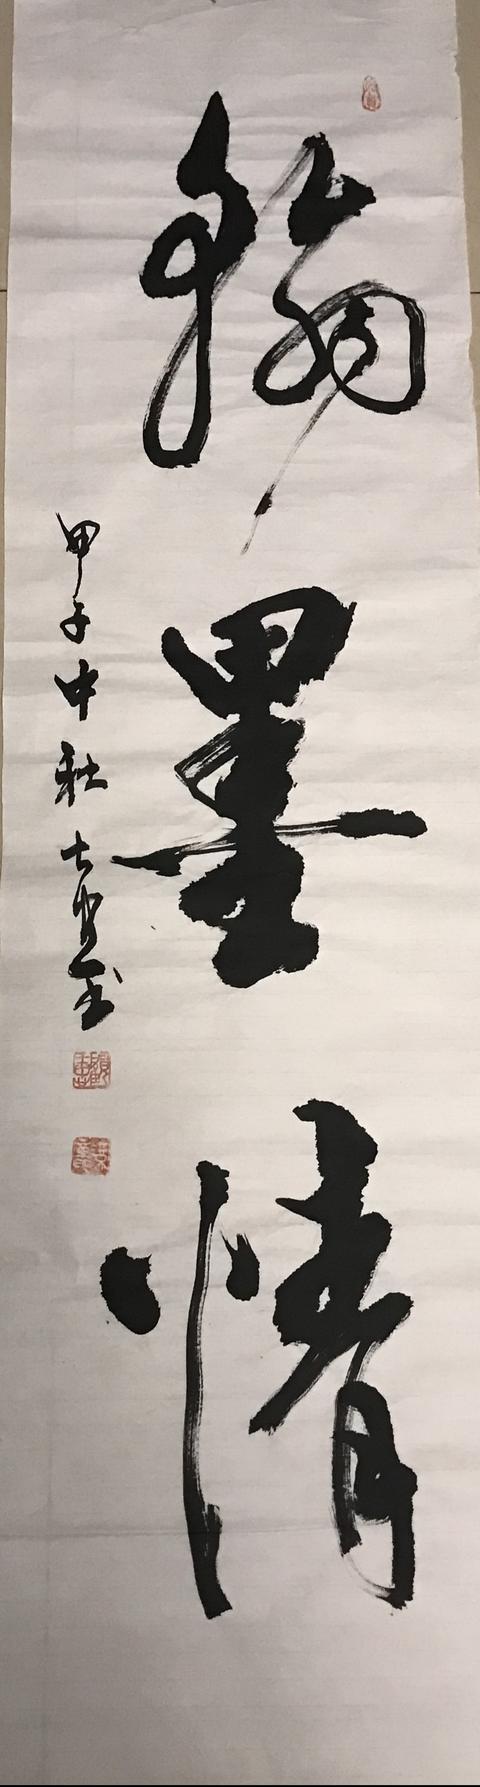 翰墨情
甲子中秋